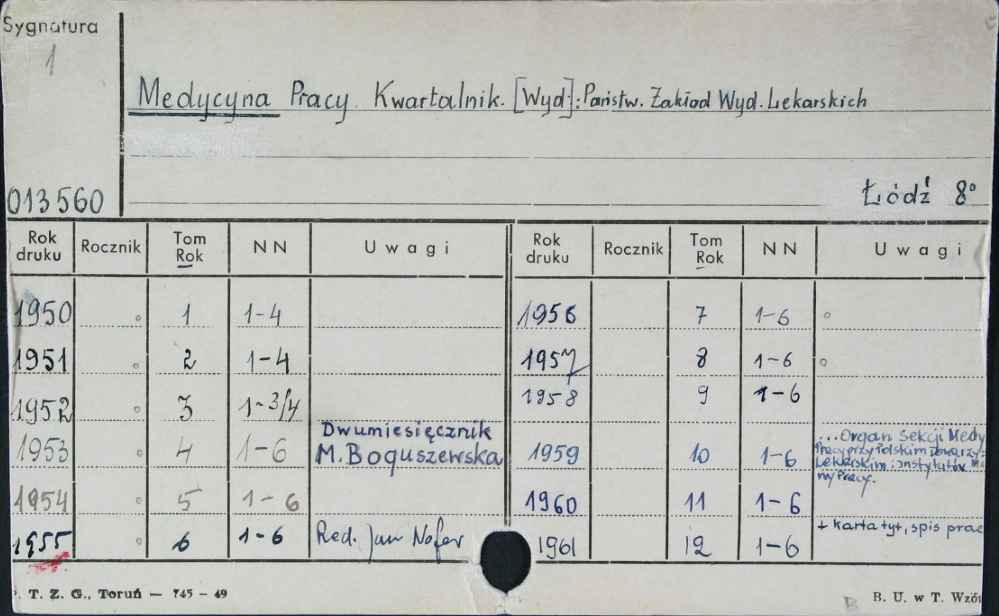 Sygnatura
1
Medycyna Pracy. Kwartalnik. [Wyd.]: Państw. Zakład Wyd. Lekarskich
013560
Łódź 8°
Rok druku Rocznik Tom Rok NN Uwagi Rok druku Rocznik Tom Rok NN Uwagi
1950 1 1-4 1956 7 1-6
1951 2 1-4 1957 8 1-6
1952 3 1-3/4 1958 9 1-6
1953 4 1-6 Dwumiesięcznik M. Boguszewska 1959 10 1-6 ...Organ Sekcji Medy
Pracy przy Polskim
Lekarskim i Instytutów
ny Pracy.
1954 5 1-6 1960 11 1-6
1955 6 1-6 Red. Jan Nofer 1961 12 1-6 + karta tyt, spis prac
T. Z. G., Toruń — 745 - 49
B. U. w T. Wzór